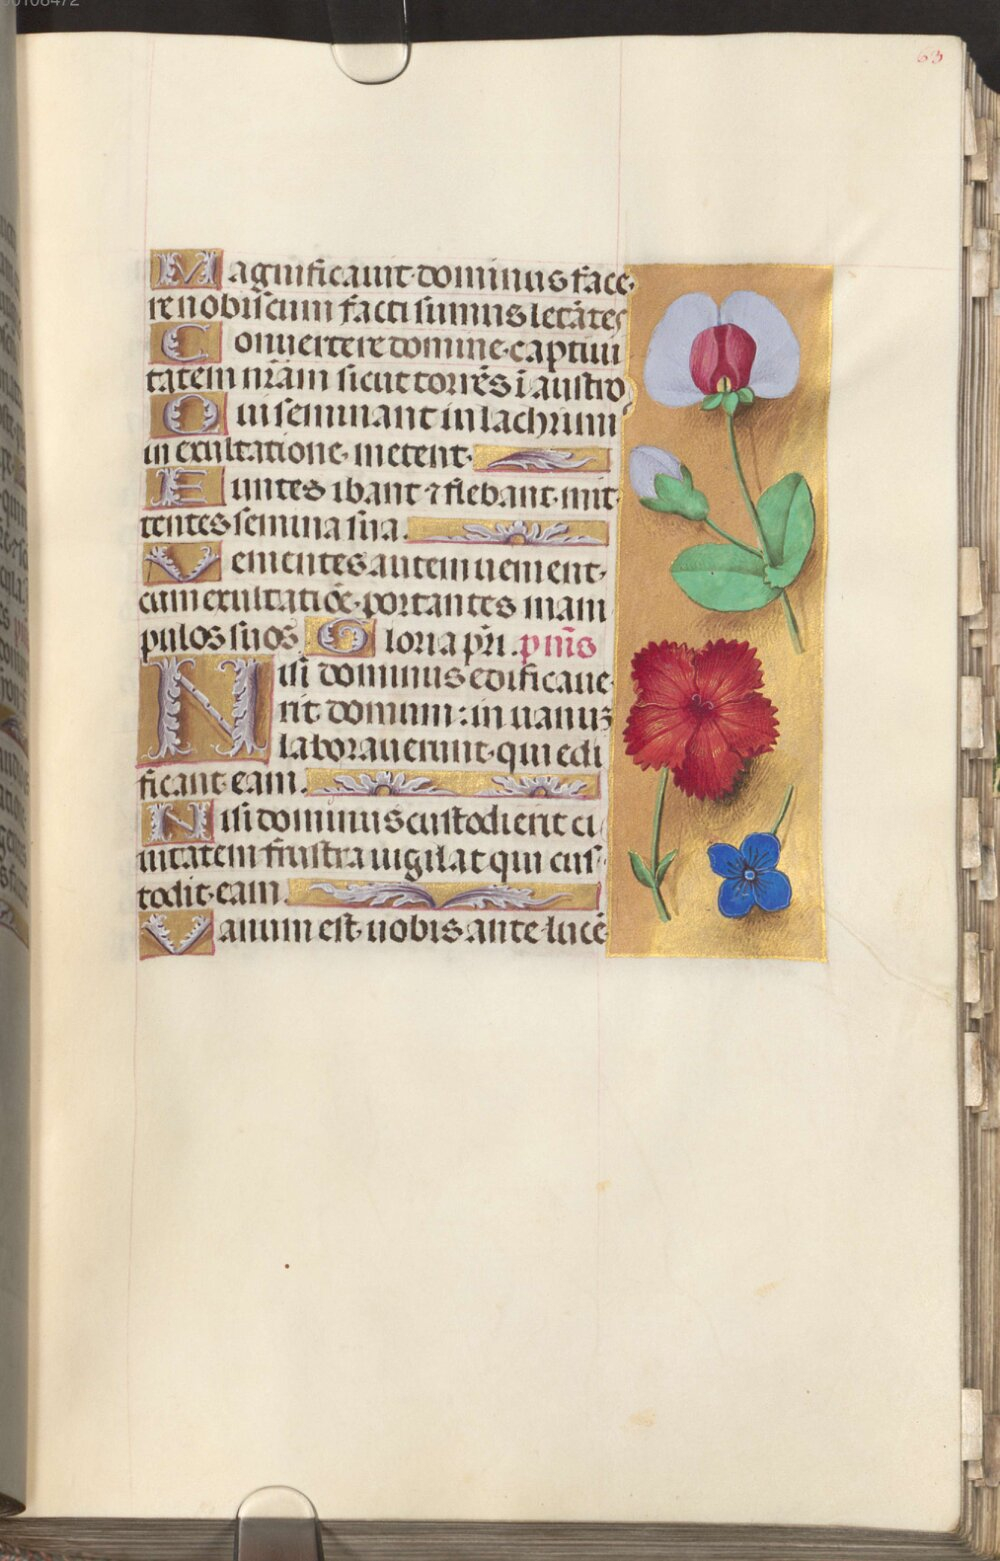 00108472
63
Magnificauit dominus face
re nobiscum facti sumus letãtes
Conuertere domine captiui
tatem nr̃am sicut torrẽs ĩ austro
Qui seminant in lachrimi
in exultatione metent.
Euntes ibant ⁊ flebant mit
tentes semina sua.
Venientes autem uenient
cum exultatiõe portantes mani
pulos suos. Gloria pr̃i. p̃ius
Nisi dominus edificaue
rit domum: in uanuʒ
laborauerunt qui edi
ficant eam.
Nisi dominus custodierit ci
uitatem frustra uigilat qui cus
todit eam.
Vanum est uobis ante lucẽ